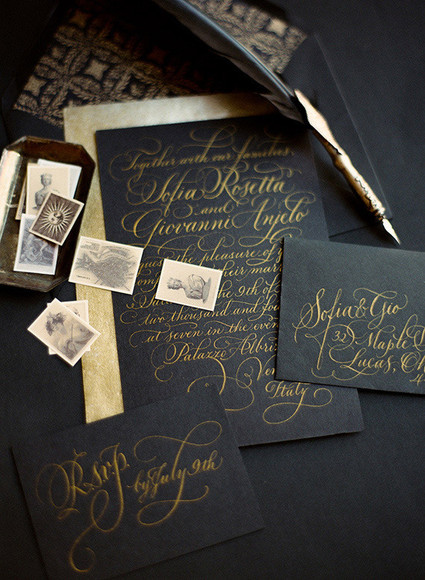 Together with our families,
Sofia Rosetta
and
Giovanni Anjelo
the pleasure of
their
the 9th of
two thousand and
at seven in the
Palazzo
Italy
Sofia & Gio
32 Maple
Lucas,
Rsvp.
by July 9th